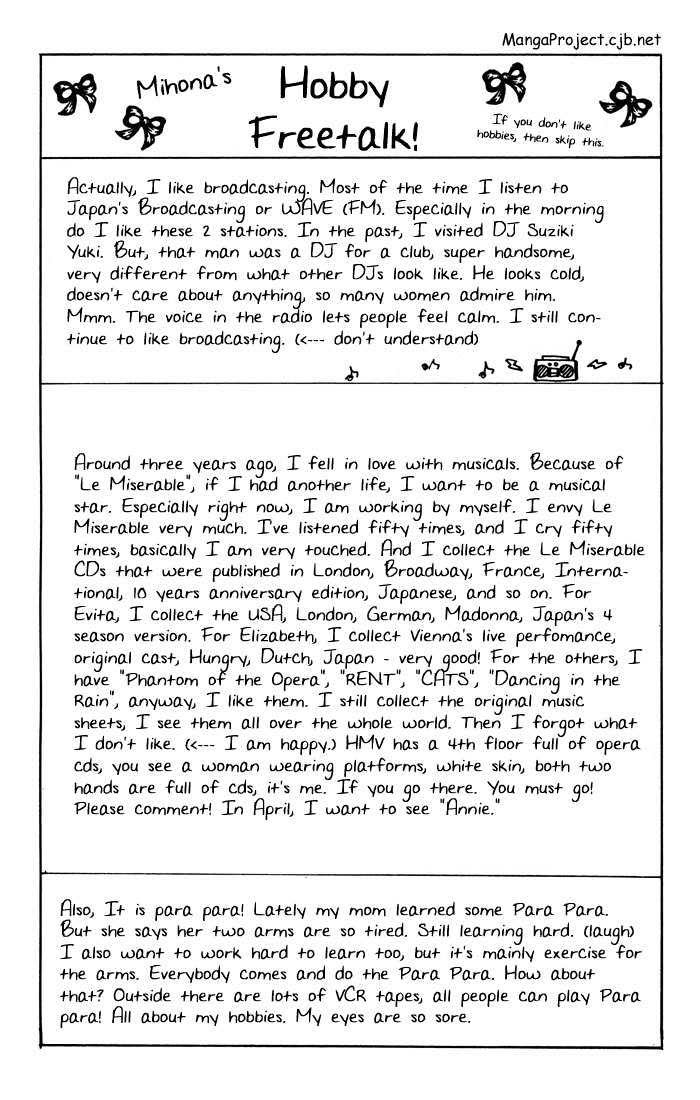 MangaProject.cjb.net
Mihona's
Hobby
Freetalk!
If you don't like
hobbies, then skip this.
Actually, I like broadcasting. Most of the time I listen to
Japan's Broadcasting or WAVE (FM). Especially in the morning
do I like these 2 stations. In the past, I visited DJ Suziki
Yuki. But, that man was a DJ for a club, super handsome,
very different from what other DJs look like. He looks cold,
doesn't care about anything, so many women admire him.
Mmm. The voice in the radio lets people feel calm. I still con-
tinue to like broadcasting. (<--- don't understand)
Around three years ago, I fell in love with musicals. Because of
"Le Miserable", if I had another life, I want to be a musical
star. Especially right now, I am working by myself. I envy Le
Miserable very much. I've listened fifty times, and I cry fifty
times, basically I am very touched. And I collect the Le Miserable
CDs that were published in London, Broadway, France, Interna-
tional, 10 years anniversary edition, Japanese, and so on. For
Evita, I collect the USA, London, German, Madonna, Japan's 4
season version. For Elizabeth, I collect Vienna's live perfomance,
original cast, Hungry, Dutch, Japan - very good! For the others, I
have "Phantom of the Opera", "RENT", "CATS", "Dancing in the
Rain", anyway, I like them. I still collect the original music
sheets, I see them all over the whole world. Then I forgot what
I don't like. (<--- I am happy.) HMV has a 4th floor full of opera
cds, you see a woman wearing platforms, white skin, both two
hands are full of cds, it's me. If you go there. You must go!
Please comment! In April, I want to see "Annie."
Also, It is para para! Lately my mom learned some Para Para.
But she says her two arms are so tired. Still learning hard. (laugh)
I also want to work hard to learn too, but it's mainly exercise for
the arms. Everybody comes and do the Para Para. How about
that? Outside there are lots of VCR tapes, all people can play Para
para! All about my hobbies. My eyes are so sore.